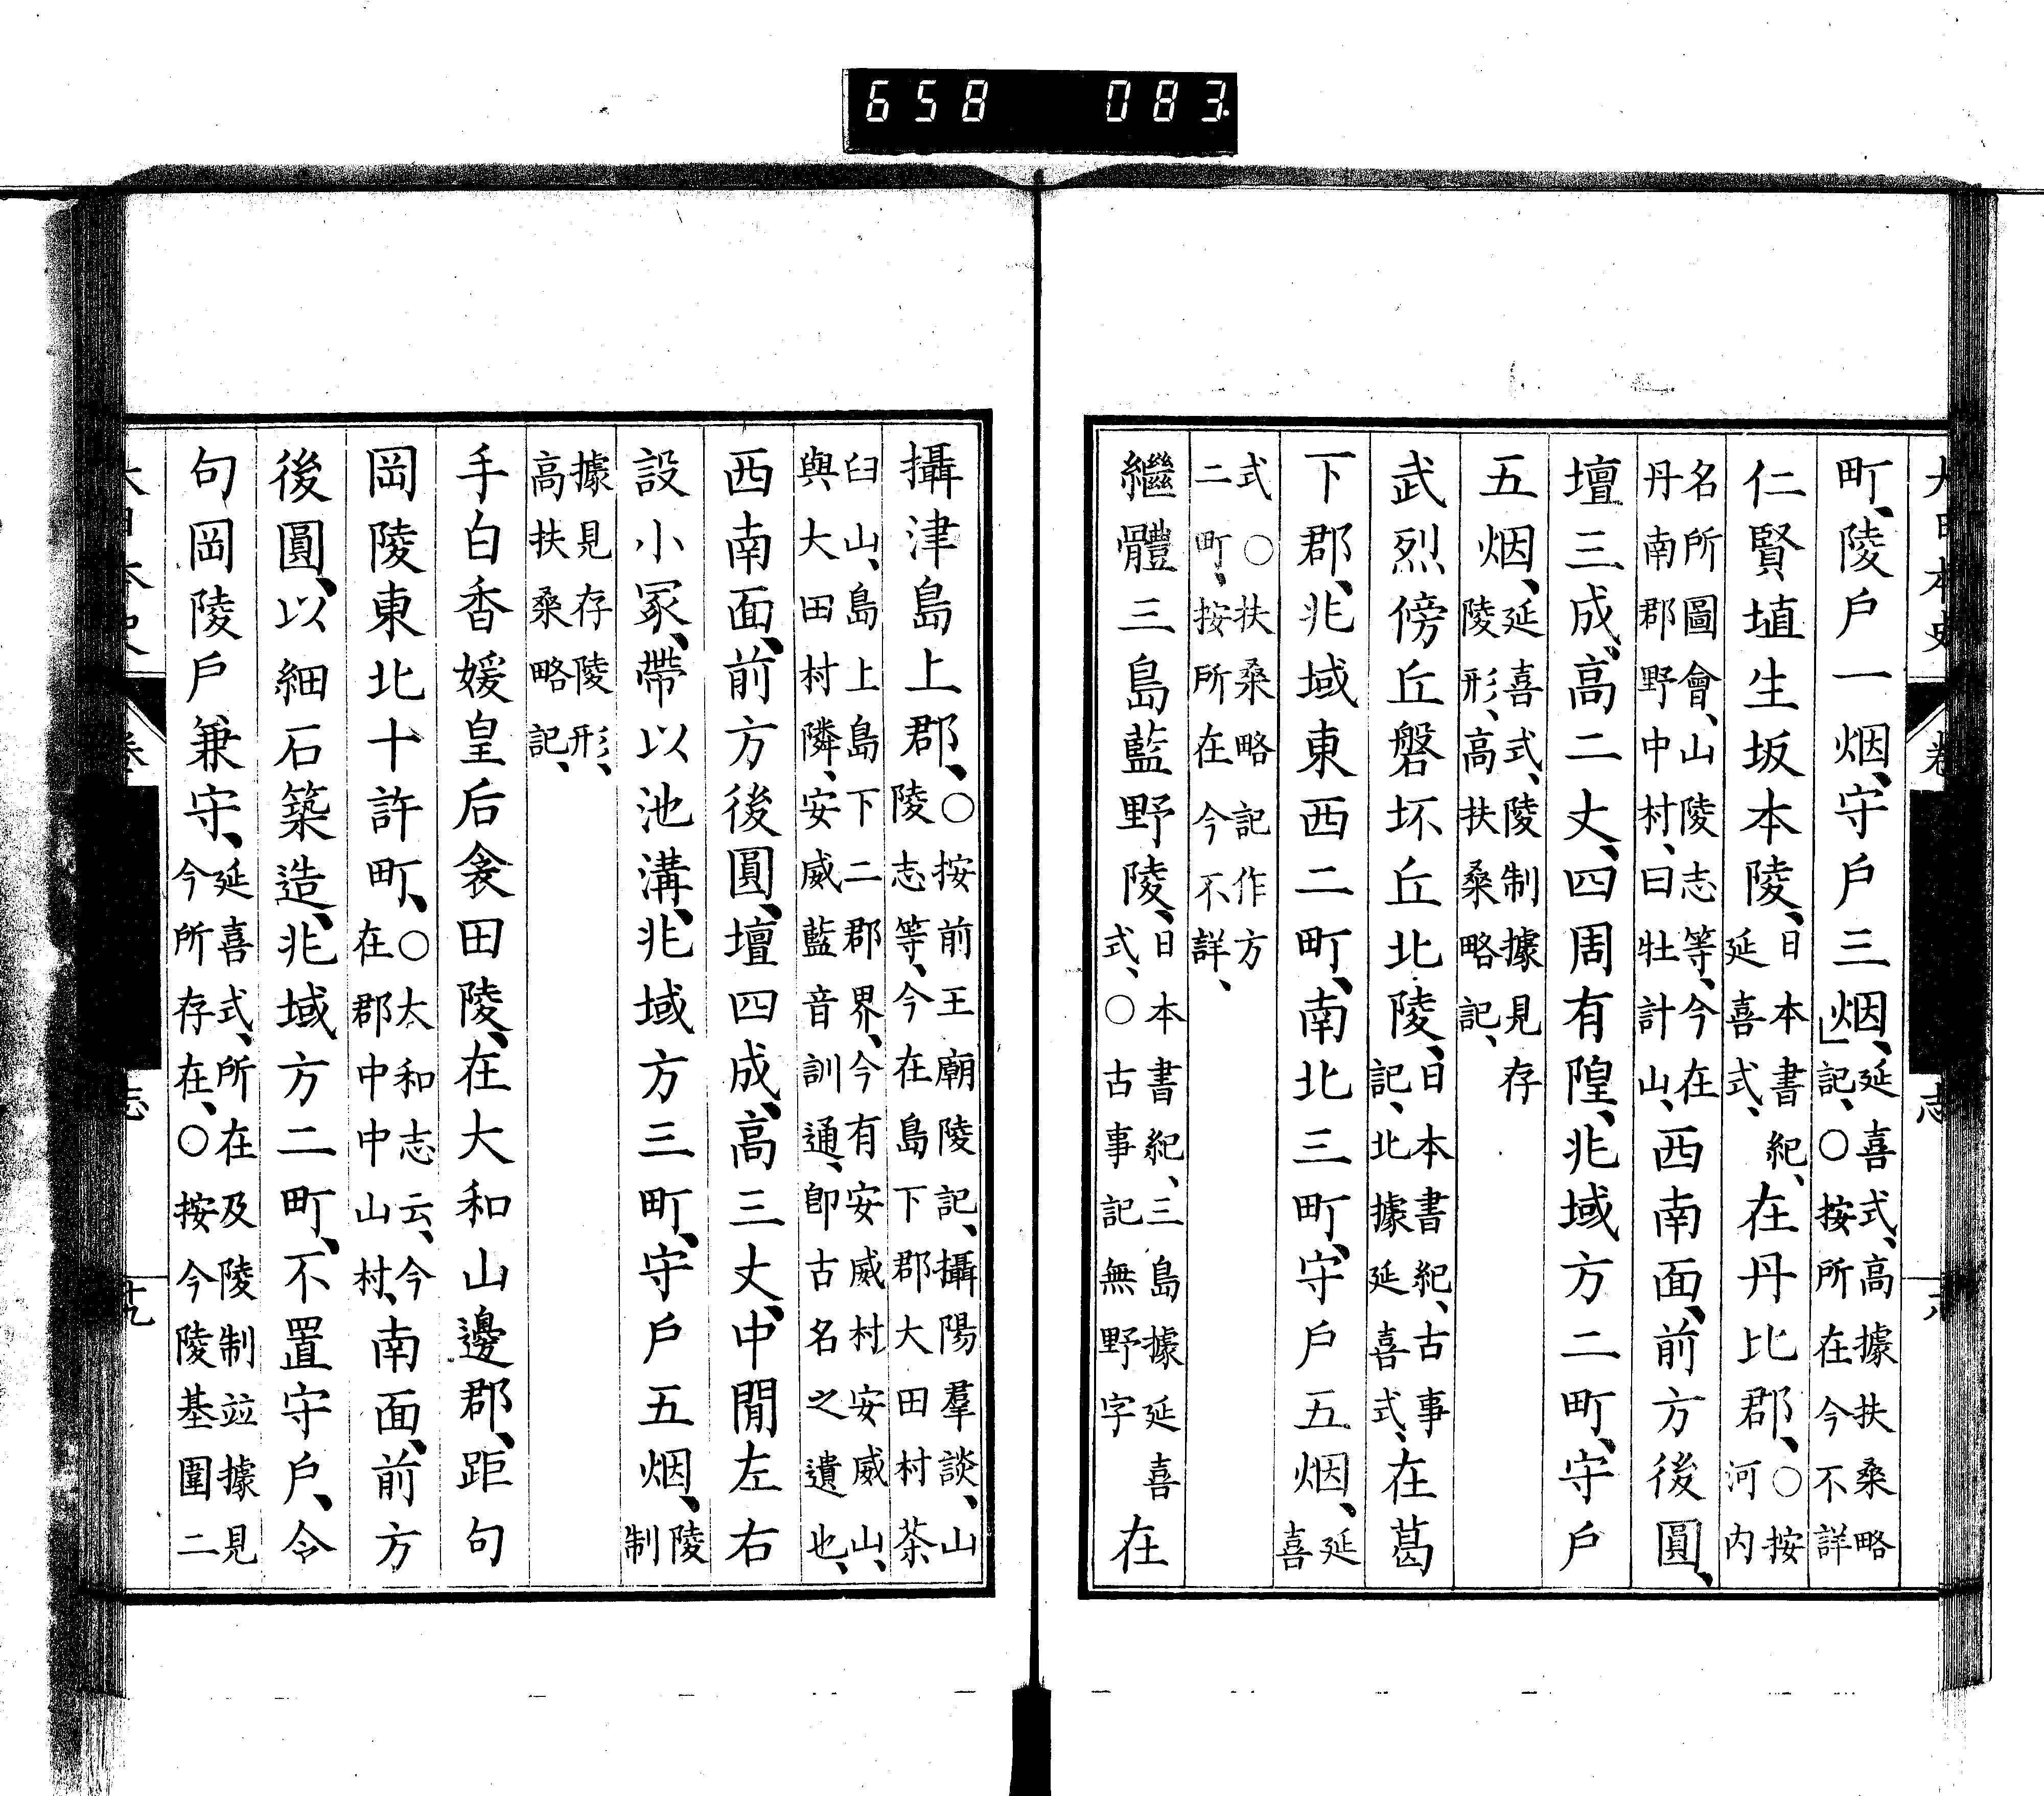 658 083
町、陵戶一烟、守戶三烟、延喜式、高據扶桑略
記、○按所在今不詳
仁賢埴生坂本陵、日本書紀、
延喜式、在丹比郡、○按
河內
名所圖會、山陵志等、今在
丹南郡野中村、曰牡計山、西南面、前方後圓、
壇三成、高二丈、四周有隍、兆域方二町、守戶
五烟、延喜式、陵制據見存
陵形、高扶桑略記、
武烈傍丘磐坏丘北陵、日本書紀、古事
記、北據延喜式、在葛
下郡、兆域東西二町、南北三町、守戶五烟、延
喜
式○扶桑略記作方
二町、按所在今不詳、
繼體三島藍野陵、日本書紀、三島據延喜
式、○古事記無野字在
攝津島上郡、○按前王廟陵記、攝陽羣談、山
陵志等、今在島下郡大田村茶
臼山、島上島下二郡界、今有安威村安威山、
與大田村隣、安威藍音訓通、卽古名之遺也、
西南面、前方後圓、壇四成、高三丈、中閒左右
設小冢、帶以池溝、兆域方三町、守戶五烟、陵
制
據見存陵形、
高扶桑略記、
手白香媛皇后衾田陵、在大和山邊郡、距句
岡陵東北十許町、○大和志云、今
在郡中中山村、南面、前方
後圓、以細石築造、兆域方二町、不置守戶、令
句岡陵戶兼守、延喜式、所在及陵制竝據見
今所存在、○按今陵基圍二